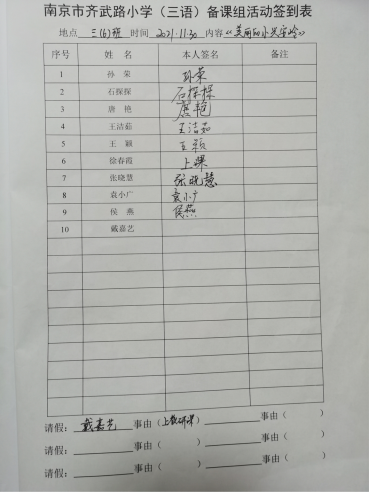 南京市齐武路小学（三语）备课组活动签到表
地点 三(6)班 时间 2021.11.30 内容《美丽的小兴安岭》
序号 姓名 本人签名 备注
1 孙荣 孙荣
2 石探探 石探探
3 唐艳 唐艳
4 王洁茹 王洁茹
5 王颖 王颖
6 徐春霞 上课
7 张晓慧 张晓慧
8 袁小广 袁小广
9 侯燕 侯燕
10 戴嘉艺
请假： 戴嘉艺 事由（上教研课） 事由（ ）
请假： 事由（ ） 事由（ ）
请假： 事由（ ） 事由（ ）